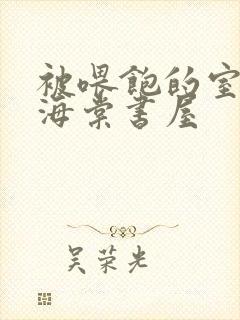 被喂饱的室
海棠书屋
吴荣光